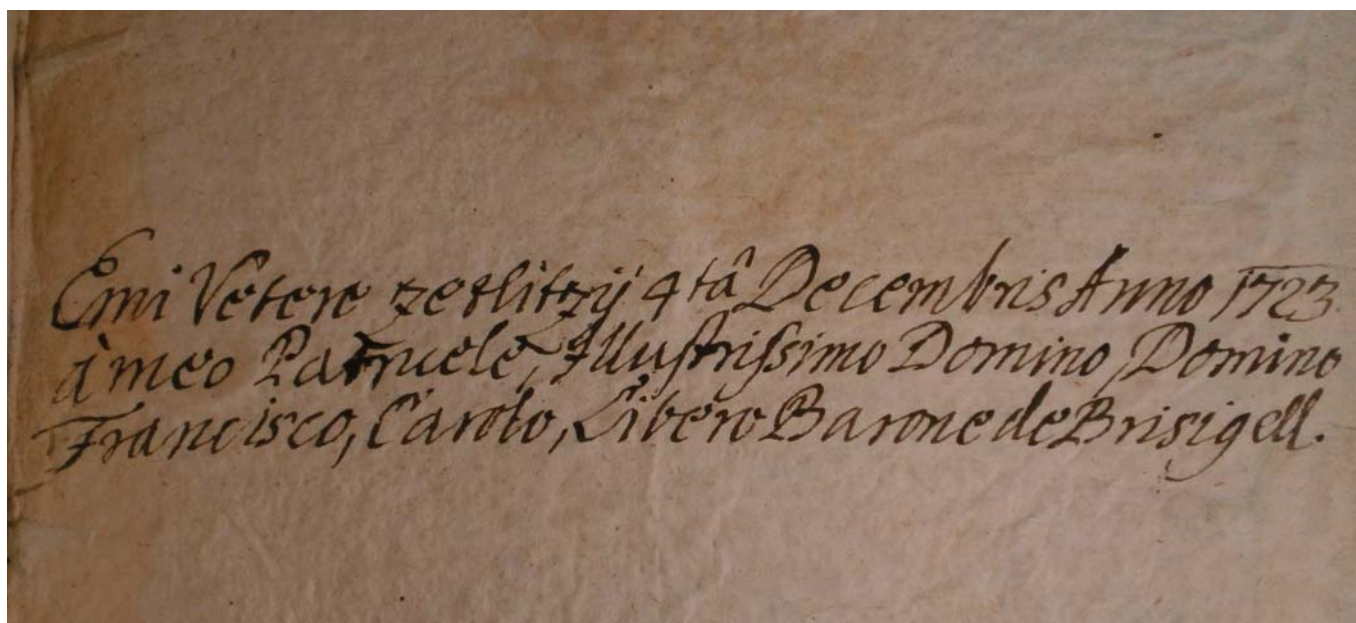 Emi Vetere Zetlitzij 4tâ Decembris Anno 1723.
à meo Patruele, Illustrissimo Domino, Domino
Francisco, Carolo, Libero Barone de Brisigell.